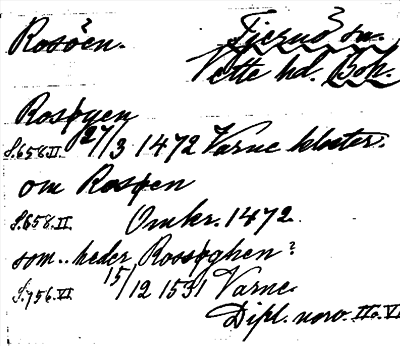 Rosöen.
Tjernö sn.
Vette hd. Boh.
Rosøyen
S.658.II. 27/3 1472 Varne kloster.
om Rosøen
S.658.II. Omkr. 1472.
som.. heder Rossøghen?
S.756.VI 15/12 1531 Varne.
Dipl. norv. II o. VI